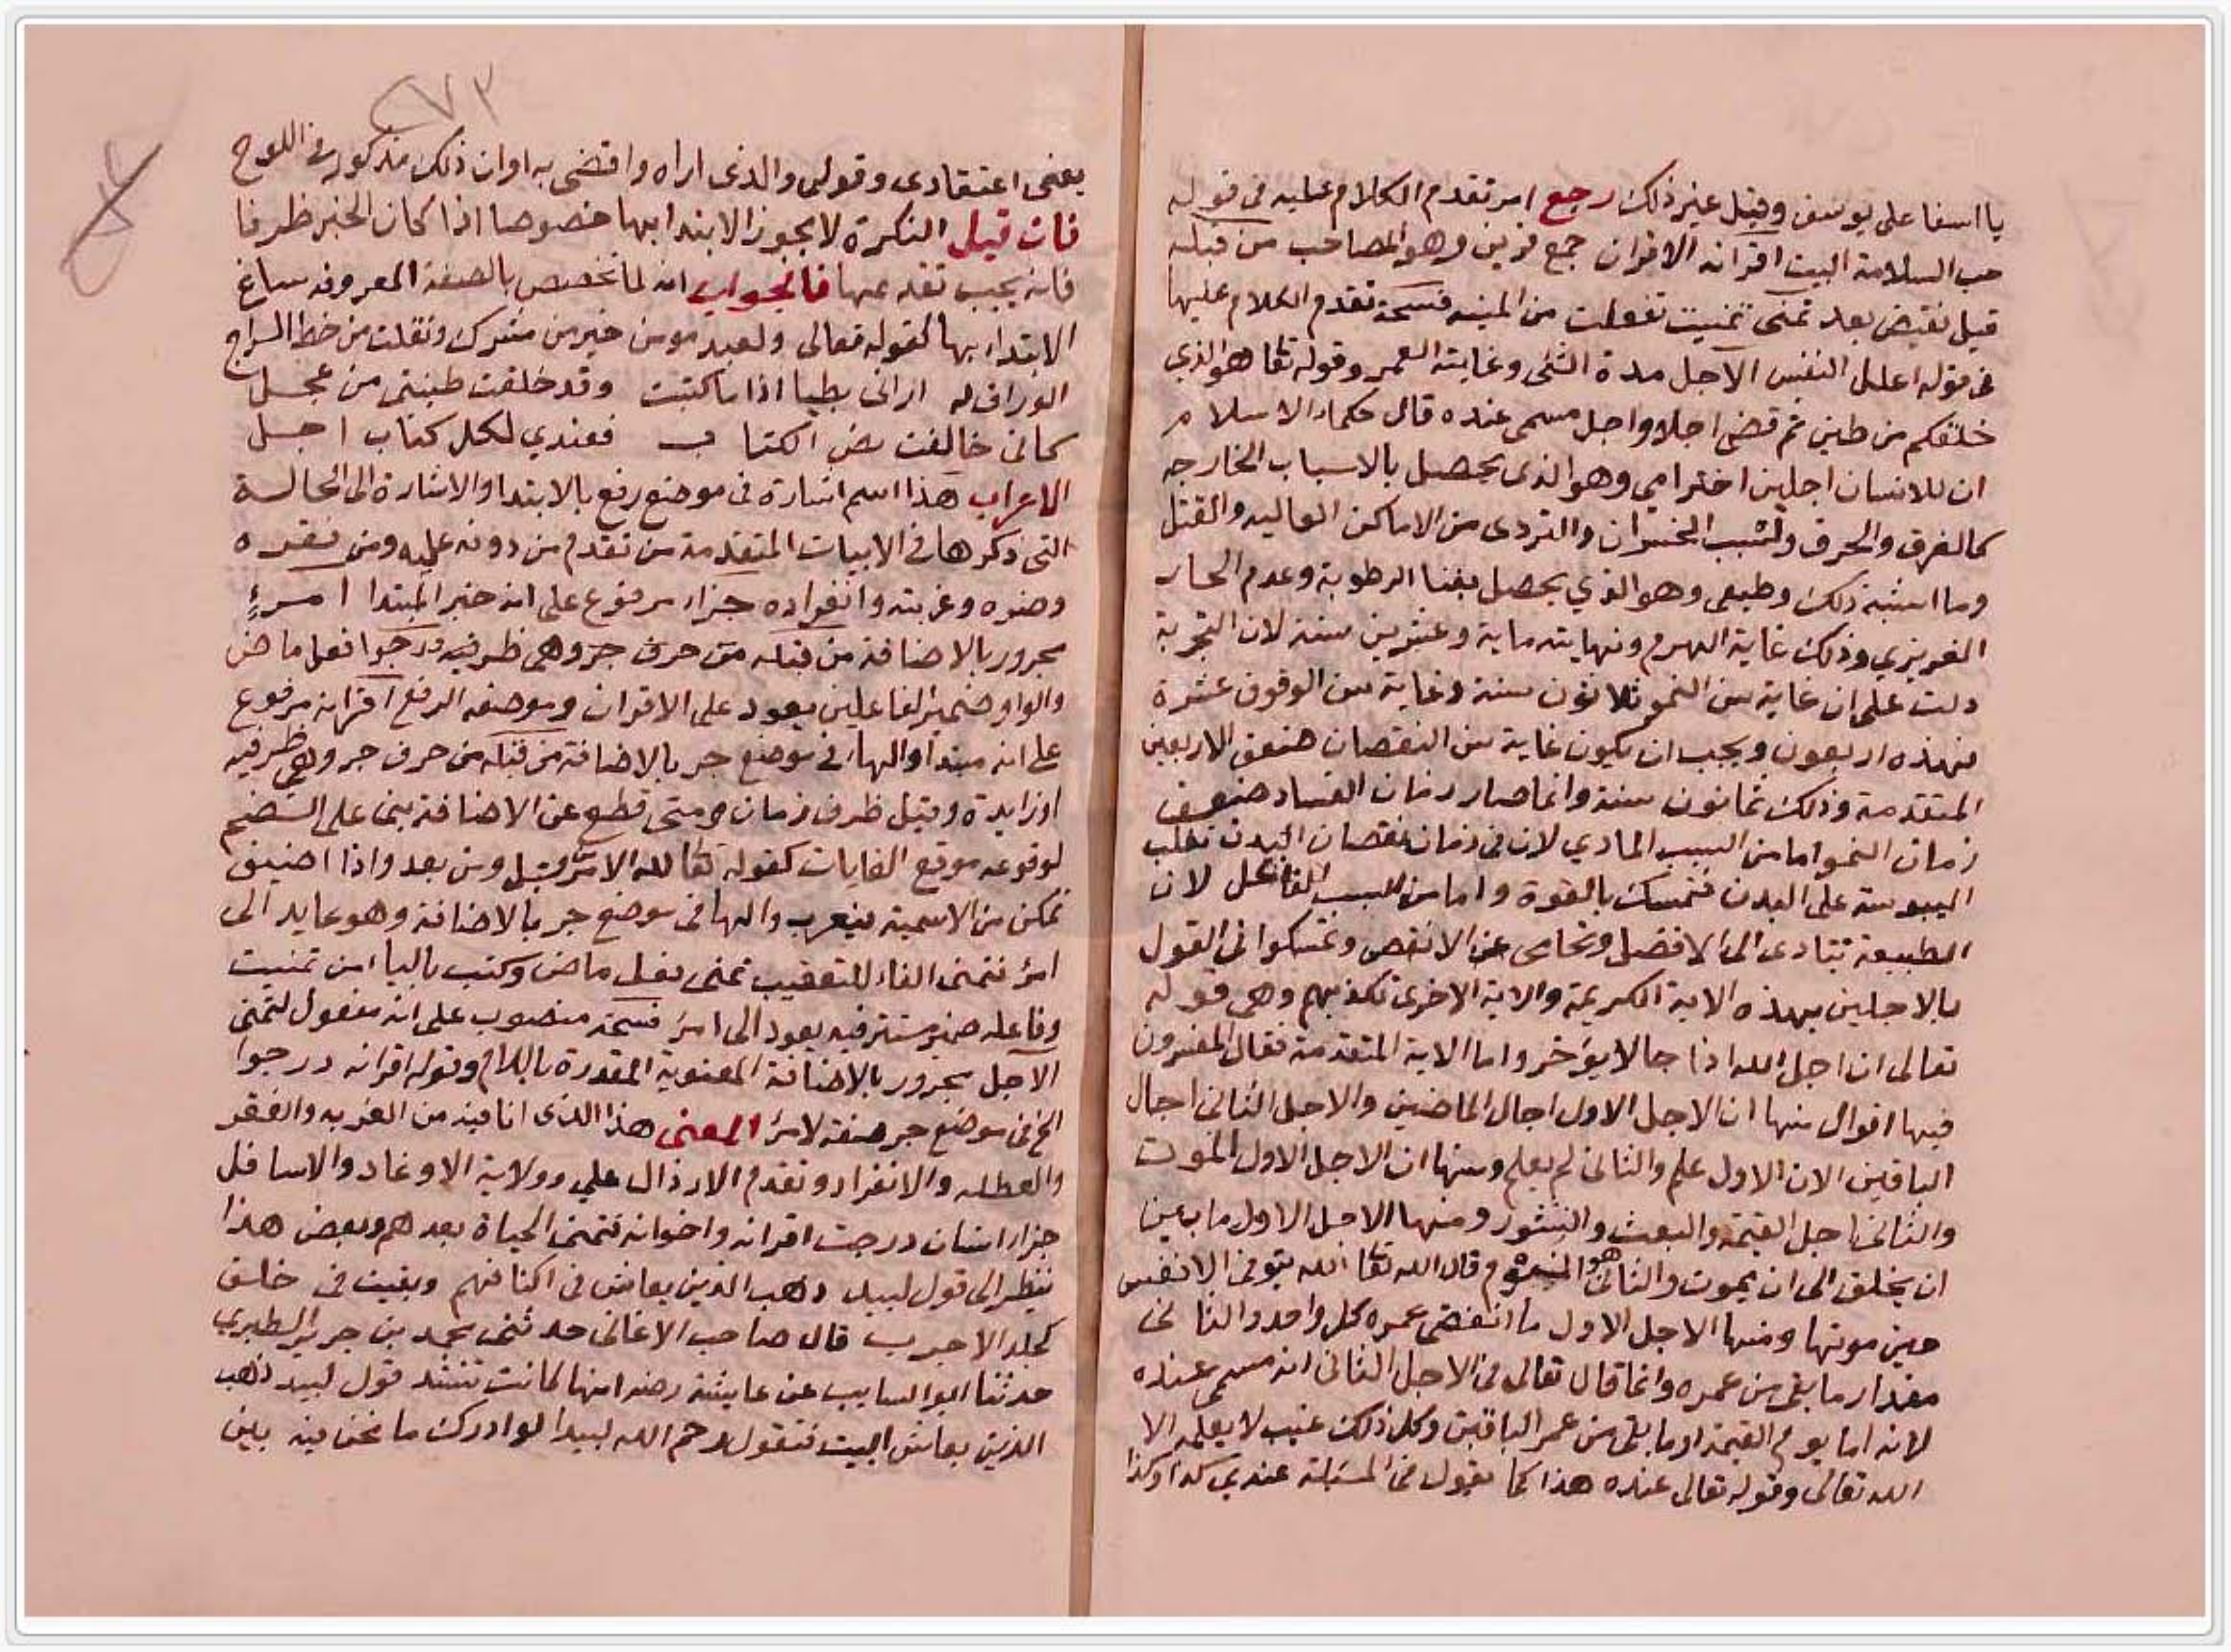 يا اسفا على يوسف وقيل غير ذلك رجع امر تقدم الكلام عليه في قوله
حب السلامة البيت اقرانه الاقران جمع قرين وهو المصاحب من قبله
قبل نقيض بعد تمنى تمنيت تفعلت من المنيه فسحة تقدم الكلام عليها
في قوله اعلل النفس الاجل مدة الشئ وغايته العمر وقوله تعا هو الذي
خلقكم من طين ثم قضى اجلا واجل مسمى عنده قال حكماء الاسلام
ان للانسان اجلين اخترامي وهو الذى يحصل بالاسباب الخارجه
كالغرق والحرق ولسب الحشرات والتردى من الاماكن العاليه والقتل
وما اشبه ذلك وطبيعى وهو الذي يحصل بفنا الرطوبة وعدم الحار
الغريزي وذلك غاية الهرم ونهايته ماية وعشرين سنة لان التجربة
دلت على ان غاية سن النمو ثلاثون سنة وغاية سن الوقوف عشرة
فهذه اربعون ويجب ان يكون غاية سن النقصان ضعف الاربعين
المتقدمة وذلك ثمانون سنة وانما صار زمان الفساد ضعف
زمان النمو اما من السبب المادي لان في زمان نقصان البدن تغلب
اليبوسة على البدن فتمسك بالقوة واما من السبب الفاعل لان
الطبيعة تتادى الى الافضل وتحامى عن الانقص وتمسكوا في القول
بالاجلين بهذه الاية الكريمة والاية الاخرى تكذبهم وهي قوله
تعالى ان اجل الله اذا جا لا يؤخر واما الاية المتقدمة فقال المفسرون
فيها اقوال منها ان الاجل الاول اجال الماضين والاجل الثانى اجال
الباقين الان الاول علم والثانى لم يعلم ومنها ان الاجل الاول الموت
والثانى اجل القيمة والبعث والنشور ومنها الاجل الاول ما بين
ان يخلق الى ان يموت والثانى هو النوم قال الله تعا الله يتوفى الانفس
حين موتها ومنها الاجل الاول ما انقضى عمره كل واحد والثانى
مقدار ما بقى من عمره وانما قال تعالى في الاجل الثانى انه مسمى عنده
لانه اما يوم القيمة او ما بقى من عمر الباقين وكل ذلك غيب لا يعلمه الا
الله تعالى وقوله تعالى عنده هذا كما تقول في المسئلة عندي كذا وكذا
٢٧٣
يعنى اعتقادى وقولى والذى اراه واقضى به او ان ذلك مذكور في اللوح
فان قيل النكرة لا يجوز الابتدا بها خصوصا اذا كان الخبر ظرفا
فانه يجب تقدمه عنها فالجواب انه لما تخصص بالصفة المعروفه ساغ
الابتداء بها كقوله تعالى ولعبد مومن خير من مشرك ونقلت من خط السراج
الوراق له ارانى بطيا اذا ما كتبت وقد خلقت طينتى من عجل
كانى خالفت نص الكتاب فعندي لكل كتاب اجل
الاعراب هذا اسم اشارة في موضع رفع بالابتدا والاشارة الى الحالة
التى ذكرها في الابيات المتقدمة من تقدم من دونه عليه ومن فقره
وعربته وانفراده جزاء مرفوع على انه خبر المبتدا امرءٍ
مجرور بالاضافة من قبله من حرف جر وهى ظرفيه درجوا فعل ماض
والواو ضمير الفاعلين يعود على الاقران وموضعه الرفع اقرانه مرفوع
على انه مبتدا والها في موضع جر بالاضافة من قبله من حرف جر وهى ظرفيه
او زايدة وقيل ظرف زمان ومتى قطع عن الاضافة بنى على الضم
لوقوعه موقع الغايات كقوله تعا لله الامر من قبل ومن بعد واذا اضيف
تمكن من الاسمية فيعرب والها في موضع جر بالاضافة وهو عايد الى
امرء فتمنى الفاء للتعقيب تمنى فعل ماض وكتب باليا من تمنيت
وفاعله ضمير مستتر فيه يعود الى امرء فسحة منصوب على انه مفعول لتمنى
الاجل مجرور بالاضافة المعنوية المقدرة باللام وقوله اقرانه درجوا
الخ في موضع جر صفة لامرء المعنى هذا الذى انا فيه من الغربه والفقر
والعطله والانفراد وتقدم الارذال علي وولاية الاوغاد والاسافل
جزاء انسان درجت اقرانه واخوانه فتمنى الحياة بعدهم وبعض هذا
ينظر الى قول لبيد ذهب الذين يعاش في اكنافهم وبقيت في خلف
كجلد الاجرب قال صاحب الاغانى حدثنى محمد بن جرير الطبري
حدثنا ابو السايب عن عايشة رضه انها كانت تنشد قول لبيد ذهب
الذين يعاش البيت فتقول رحم الله لبيدا لو ادرك ما نحن فيه بين